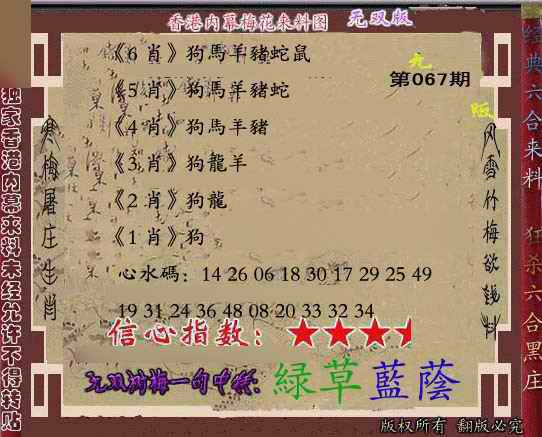 香港内幕梅花来料图 无双版
《6 肖》狗馬羊豬蛇鼠
九
第067期
《5 肖》狗馬羊豬蛇
版
《4 肖》狗馬羊豬
《3 肖》狗龍羊
《2 肖》狗龍
《1 肖》狗
心水碼：14 26 06 18 30 17 29 25 49
19 31 24 36 48 08 20 33 32 34
信心指数：
无双鸿梅一句中特：綠草藍蔭
版权所有 翻版必究
独家香港内幕来料未经允许不得转贴
寒梅屠庄生肖
风雪竹梅欲钱料
经典六合来料 狂杀六合黑庄